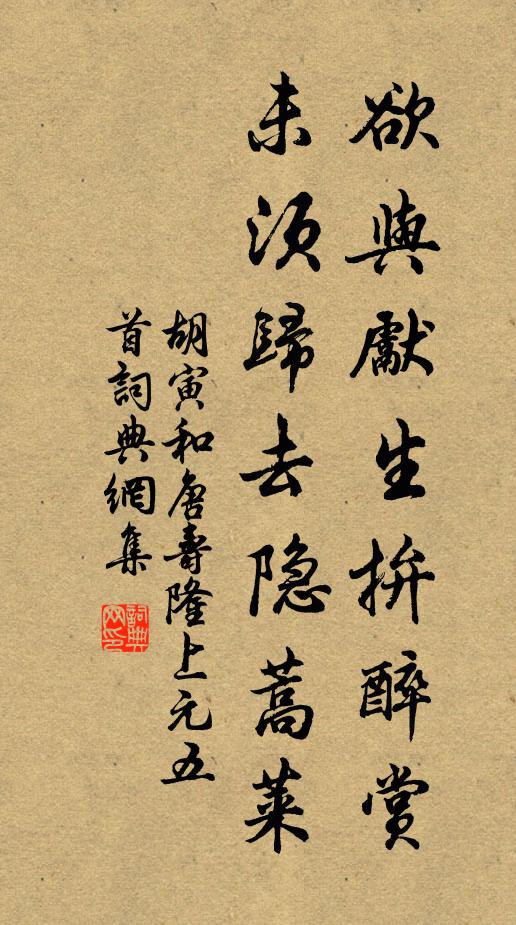 欲與獻生拚醉賞
未須歸去隐蒿萊
胡寅和唐壽隆上元五
首詞典網集
詞典网印